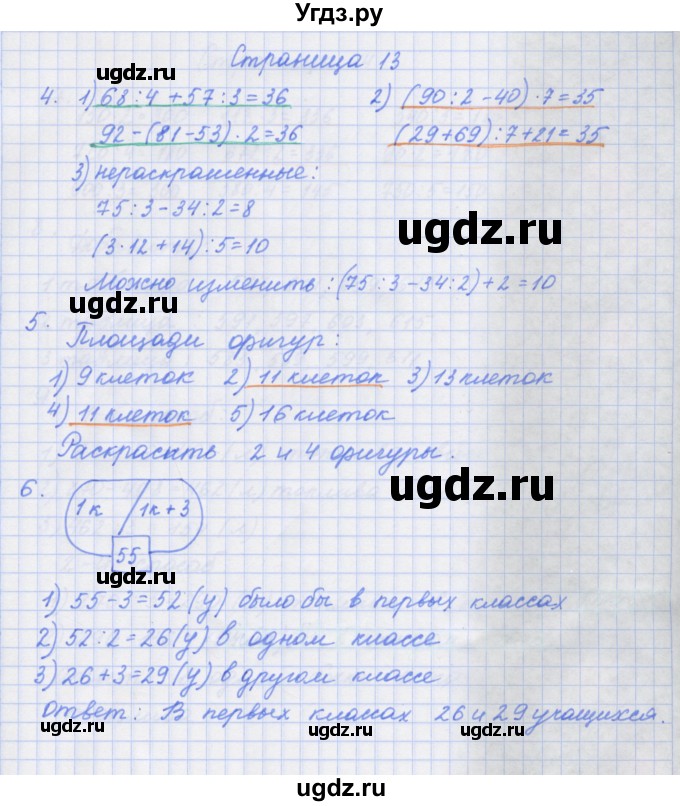 Угдз.ру
Страница 13
ugdz.ru
4. 1) 68:4+57:3=36 2) (90:2-40)·7=35
92-(81-53)·2=36 (29+69):7+21=35
ugdz.ru
3) нераскрашенные:
75:3-34:2=8
ugdz.ru
(3·12+14):5=10
Можно изменить: (75:3-34:2)+2=10
ugdz.ru
5. Площади фигур:
1) 9 клеток 2) 11 клеток 3) 13 клеток
4) 11 клеток 5) 16 клеток
ugdz.ru
Раскрасить 2 и 4 фигуры.
ugdz.ru
6. 1к 1к+3
55
ugdz.ru
1) 55-3=52 (у) было бы в первых классах
2) 52:2=26 (у) в одном классе
ugdz.ru
3) 26+3=29 (у) в другом классе
Ответ: В первых классах 26 и 29 учащихся.
ugdz.ru
ugdz.ru